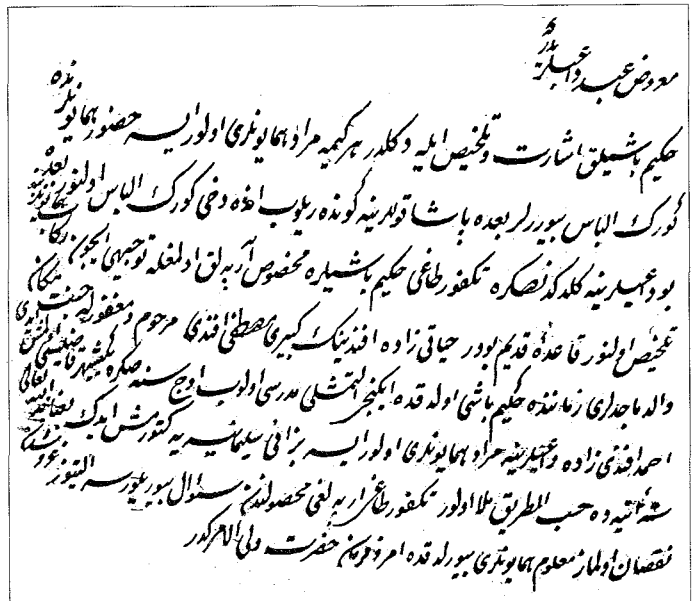 معروض عبد داعيلريدر كه
حكيم باشيلق اشارت و تلخيص ايله دكلدر هر كيميه مراد همايونلرى اولورايسه حضور همايونلرنده
كورك الباس بيوررلر بعده پاشا قوللرينه كوندريلوب انده دخى كورك الباس اولنور بعده
بو داعيلرينه كلدكدنصكره تكفورطاغى حكيم باشيلره مخصوص آرپه لق اولمغله توجيهى ايچون ركاب همايونلرينه
تلخيص اولنور قاعدهٔ قديم بودر حياتى زاده افندينك كبيرى مصطفى افندى مرحوم و مغفور له جنت مكان
والد ماجدلرى زماننده حكيم باشى اولدقده ايكنجى التمشلى مدرسى اولوب اوچ سنه صكره يكيشهر قاضيسى اولمش ايدى
احمد افندى زاده داعيلرينه مراد همايونلرى اولورايسه بز انى سليمانيه يه كتورمش ايدك ان شاء الله تعالى
سنهٔ آتيه ده حسب الطريق ملا اولور تكفورطاغى ارپه لغى محصولندن سؤال بيوريلورسه التيوز غروشدن
نقصان اولماز معلوم همايونلرى بيورلدقده امر و فرمان حضرت ولى الامركدر